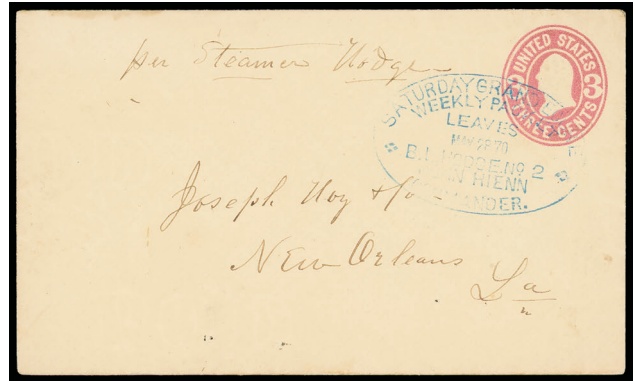 per Steamer Hodge
UNITED STATES
3 3
THREE CENTS
SATURDAY GRAND
WEEKLY PACKET
LEAVES
MAY 28 70
B.L. HODGE No 2
RIENN
COMMANDER.
Joseph Hoy & Co
New Orleans
La